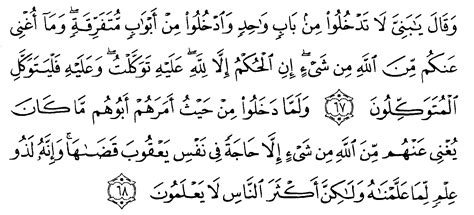 وَقَالَ يَـٰبَنِىَّ لَا تَدْخُلُوا۟ مِنۢ بَابٍ وَٰحِدٍ وَٱدْخُلُوا۟ مِنْ أَبْوَٰبٍ مُّتَفَرِّقَةٍ ۖ وَمَآ أُغْنِى
عَنكُم مِّنَ ٱللَّهِ مِن شَىْءٍ ۖ إِنِ ٱلْحُكْمُ إِلَّا لِلَّهِ ۖ عَلَيْهِ تَوَكَّلْتُ ۖ وَعَلَيْهِ فَلْيَتَوَكَّلِ
ٱلْمُتَوَكِّلُونَ ﴿٦٧﴾ وَلَمَّا دَخَلُوا۟ مِنْ حَيْثُ أَمَرَهُمْ أَبُوهُم مَّا كَانَ
يُغْنِى عَنْهُم مِّنَ ٱللَّهِ مِن شَىْءٍ إِلَّا حَاجَةً فِى نَفْسِ يَعْقُوبَ قَضَىٰهَا ۚ وَإِنَّهُۥ لَذُو
عِلْمٍ لِّمَا عَلَّمْنَـٰهُ وَلَـٰكِنَّ أَكْثَرَ ٱلنَّاسِ لَا يَعْلَمُونَ ﴿٦٨﴾